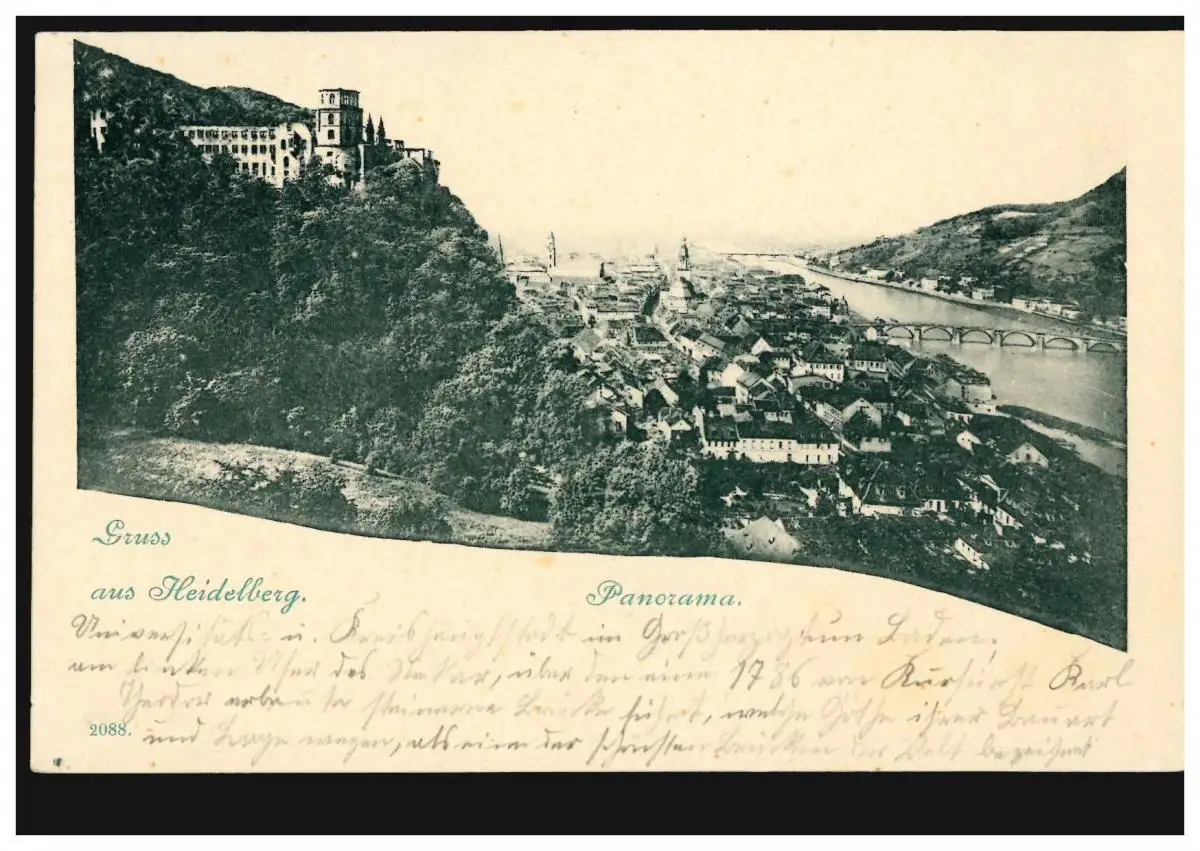 Gruss
aus Heidelberg.
Panorama.
Universitäts- u. Kreishauptstadt im Großherzogtum Baden,
am linken Ufer des Neckar, über den eine 1786 von Kurfürst Karl
Theodor erbaute steinerne Brücke führt, welche Göthe ihrer Bauart
2088.
und Lage wegen, als eine der schönsten Brücken der Welt bezeichnet